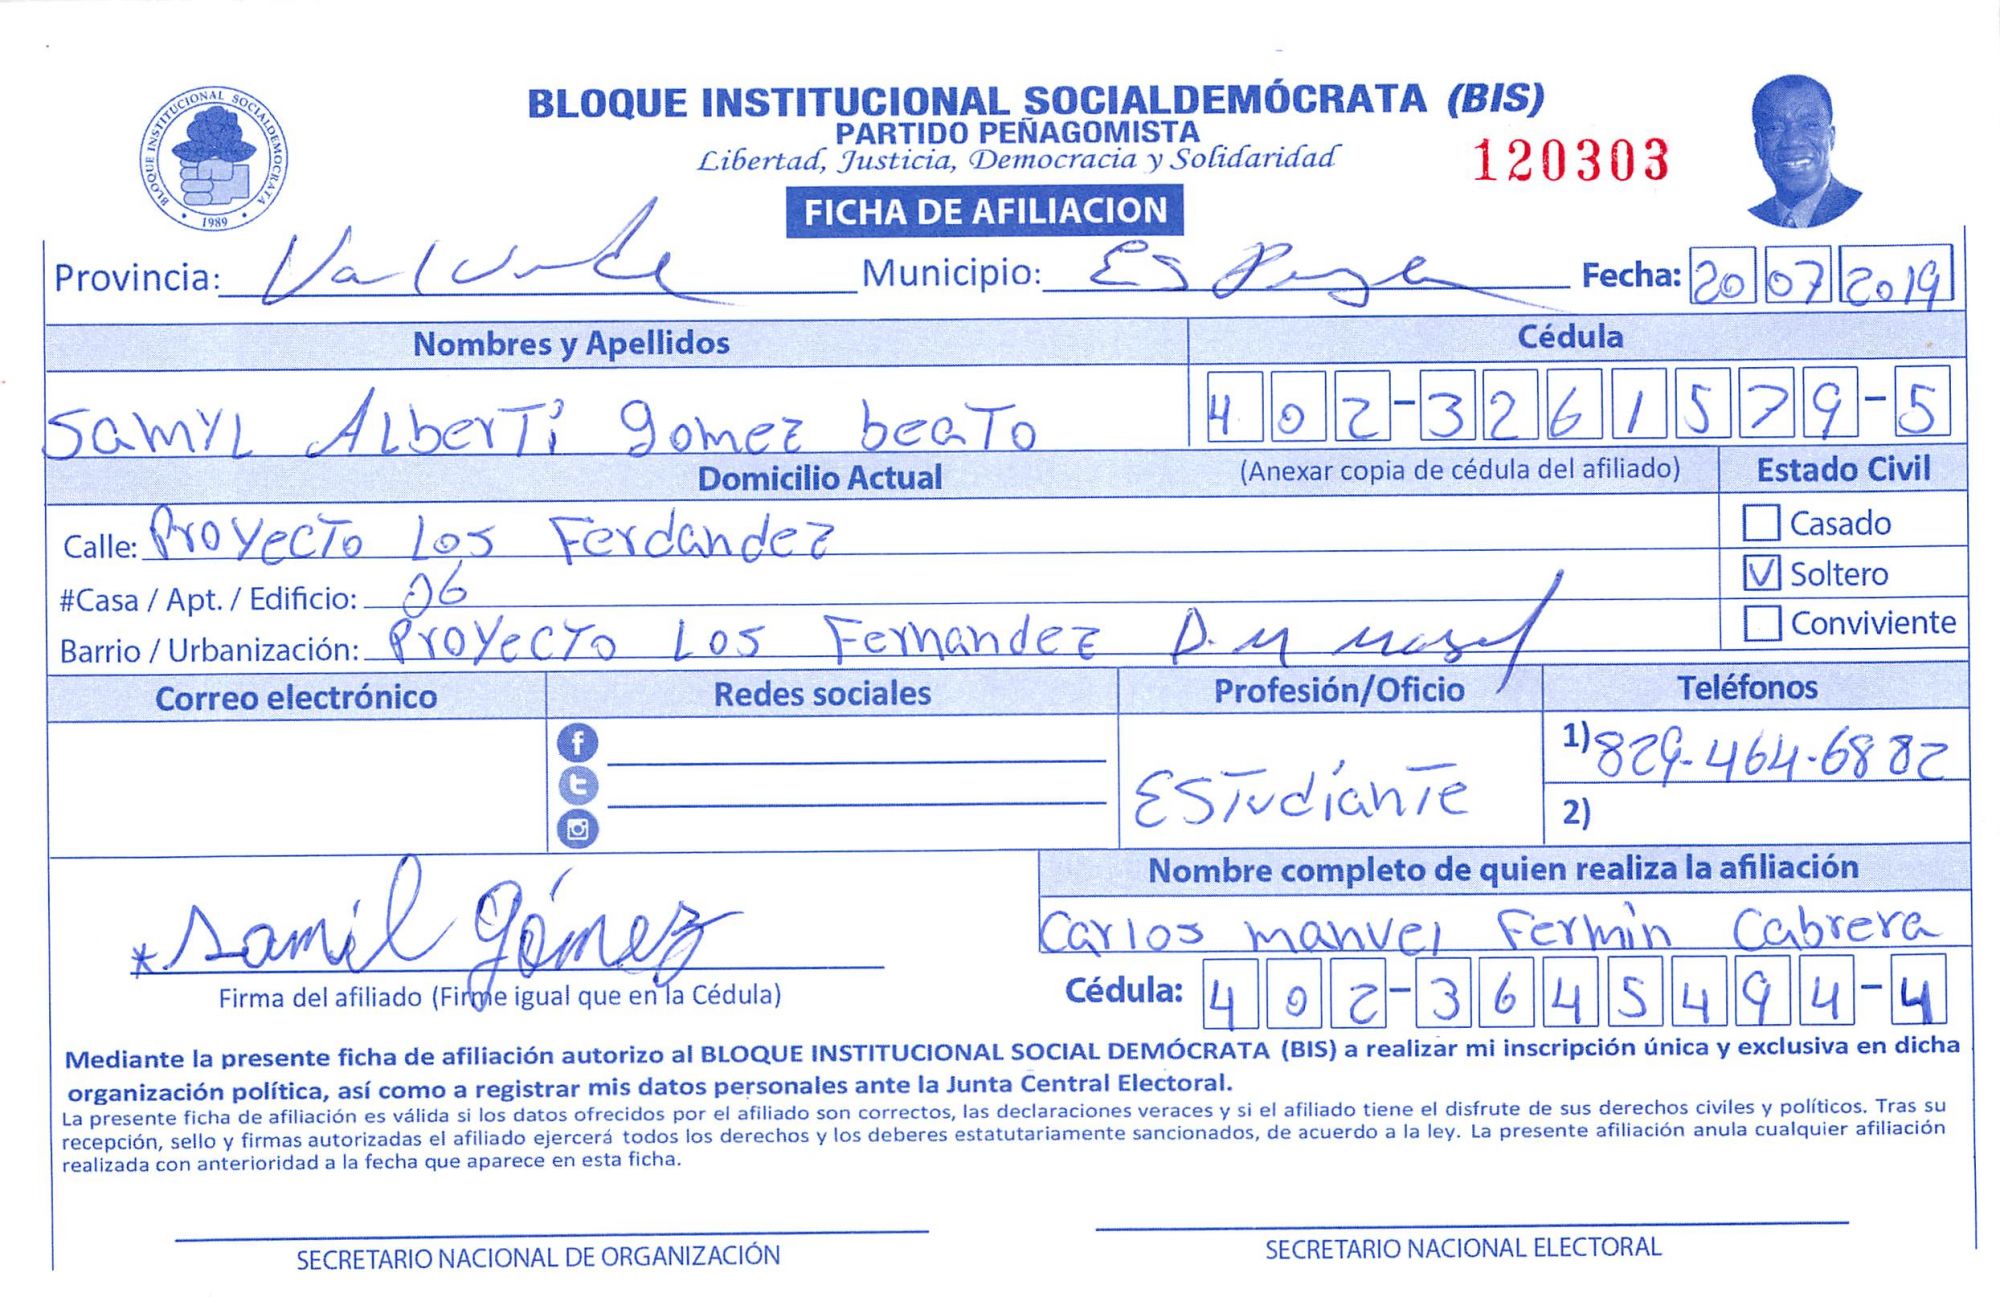 BLOQUE INSTITUCIONAL SOCIALDEMOCRATA
1989
BLOQUE INSTITUCIONAL SOCIALDEMÓCRATA (BIS)
PARTIDO PEÑAGOMISTA
Libertad, Justicia, Democracia y Solidaridad
120303
FICHA DE AFILIACION
Provincia: Valverde Municipio: Esperanza Fecha: 20 07 2019
Nombres y Apellidos Cédula
Samyl Alberti gomez beato 402-3261579-5
Domicilio Actual (Anexar copia de cédula del afiliado) Estado Civil
Calle: Proyecto Los Ferdandez Casado
#Casa / Apt. / Edificio: 06 V Soltero
Barrio / Urbanización: Proyecto Los Fernandez D.M Conviviente
Correo electrónico Redes sociales Profesión/Oficio Teléfonos
1) 829-464-6882
Estudiante
2)
Nombre completo de quien realiza la afiliación
Carlos manuel Fermin Cabrera
*Samil Gómez
Firma del afiliado (Firme igual que en la Cédula) Cédula: 402-3645494-4
Mediante la presente ficha de afiliación autorizo al BLOQUE INSTITUCIONAL SOCIAL DEMÓCRATA (BIS) a realizar mi inscripción única y exclusiva en dicha
organización política, así como a registrar mis datos personales ante la Junta Central Electoral.
La presente ficha de afiliación es válida si los datos ofrecidos por el afiliado son correctos, las declaraciones veraces y si el afiliado tiene el disfrute de sus derechos civiles y políticos. Tras su
recepción, sello y firmas autorizadas el afiliado ejercerá todos los derechos y los deberes estatutariamente sancionados, de acuerdo a la ley. La presente afiliación anula cualquier afiliación
realizada con anterioridad a la fecha que aparece en esta ficha.
SECRETARIO NACIONAL DE ORGANIZACIÓN SECRETARIO NACIONAL ELECTORAL